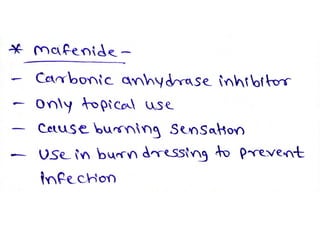 * Mafenide -
- Carbonic anhydrase inhibitor
- Only topical use
- Cause burning sensation
- Use in burn dressing to prevent
infection